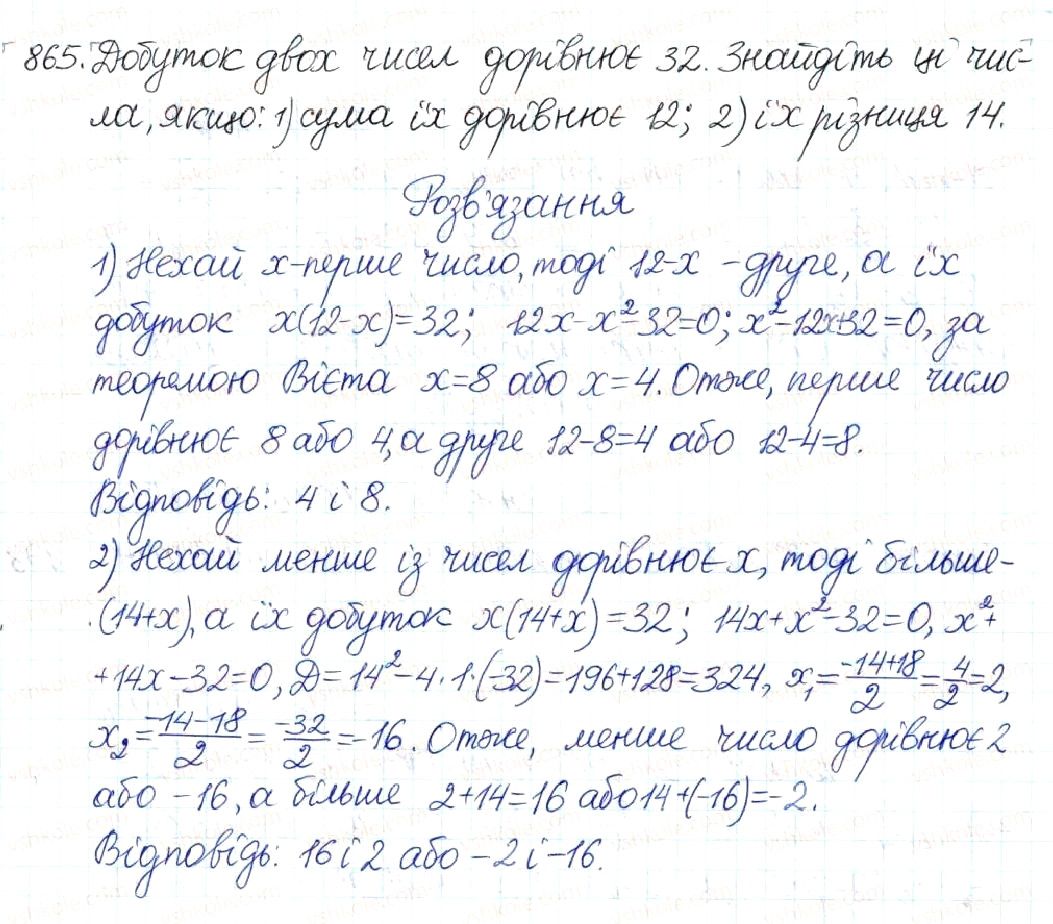 865. Добуток двох чисел дорівнює 32. Знайдіть ці чис-
ла, якщо: 1) сума їх дорівнює 12; 2) їх різниця 14.
Розв'язання
1) Нехай x-перше число, тоді 12-x - друге, а їх
добуток x(12-x)=32; 12x-x²-32=0; x²-12x+32=0, за
теоремою Вієта x=8 або x=4. Отже, перше число
дорівнює 8 або 4, а друге 12-8=4 або 12-4=8.
Відповідь: 4 і 8.
2) Нехай менше із чисел дорівнює x, тоді більше-
(14+x), а їх добуток x(14+x)=32; 14x+x²-32=0, x²+
+14x-32=0, Д=14²-4·1·(-32)=196+128=324, x₁=(-14+18)/2=4/2=2,
x₂=(-14-18)/2=-32/2=-16. Отже, менше число дорівнює 2
або -16, а більше 2+14=16 або 14+(-16)=-2.
Відповідь: 16 і 2 або -2 і -16.